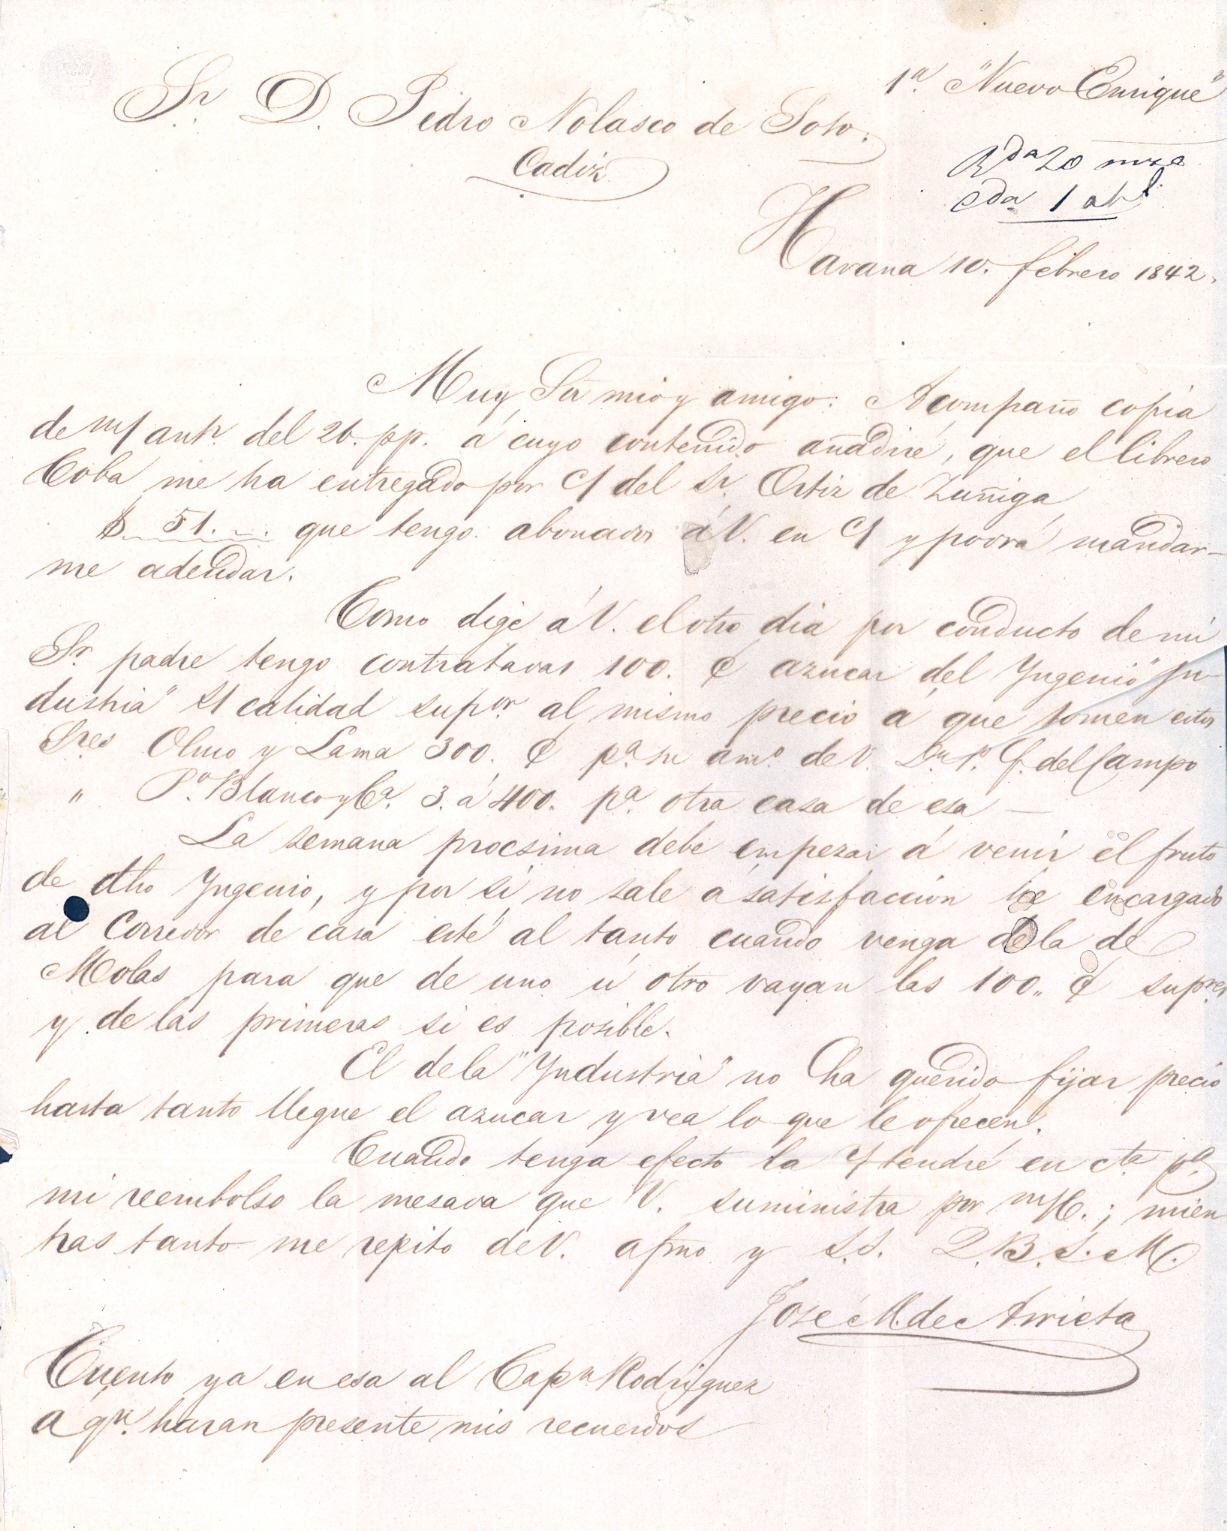 1ª "Nuevo Enrique"
Sr. D. Pedro Nolasco de Soto.
Cadiz
Rda 20 mzo
cda 1 abl
Havana 10. febrero 1842.
Muy Sor mio y amigo: Acompaño copia
de m/ antr. del 26. pp. á cuyo contenido añadiré, que el librero
Coba me ha entregado por c/ del Sr. Ortiz de Zuñiga
$ 51.. que tengo abonados á V. en c/ y podrá mandar-
me adeudar.
Como dige á V. el otro dia por conducto de mi
Sr. padre tengo contratadas 100. C azucar del Yngenio "Jn-
dustria" calidad supor al mismo precio á que tomen estos
Sres Olmo y Lama 300. C pa. su amo. de V. Dn. Po. G. del Campo
" Po. Blanco y Ca. 3. á 400. pa. otra casa de esa —
La semana procsima debe empezar á venir el fruto
de dho Yngenio, y por si no sale á satisfaccion he encargado
al Corredor de casa esté al tanto cuando venga de la de
Molas para que de uno ú otro vayan las 100.. C supres
y de las primeras si es posible.
El de la "Yndustria" no ha querido fijar precio
hasta tanto llegue el azucar y vea lo que le ofrecen.
Cuando tenga efecto la tendré en cta. pa.
mi reembolso la mesada que V. suministra por m/c.; mien
tras tanto me repito de V. afmo y S.S. Q.B.S.M.
Jose M. de Arrieta
Cuento ya en esa al Capn Rodriguez
a qn. haran presente mis recuerdos